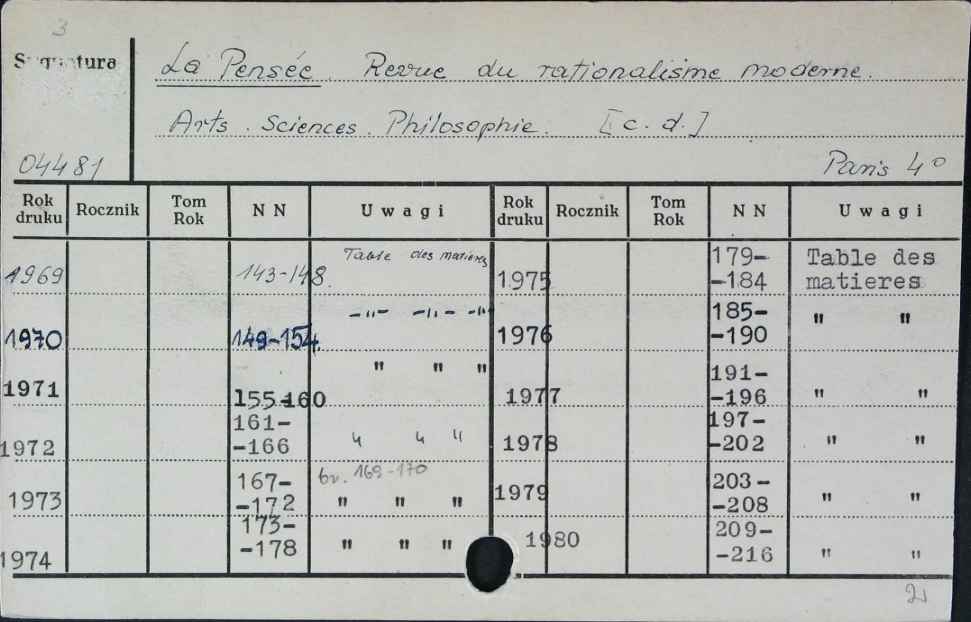 3
Sygnatura
La Pensée. Revue du rationalisme moderne.
Arts. Sciences. Philosophie. [c. d.]
04481
Paris 4°
Rok druku Rocznik Tom Rok NN Uwagi Rok druku Rocznik Tom Rok NN Uwagi
1969 143-148. Table des matieres 1975 179--184 Table des matieres
1970 149-154 -"- -"- -"- 1976 185--190 " "
1971 155-160 " " " 1977 191--196 " "
1972 161--166 " " " 1978 197--202 " "
1973 167--172 br. 169-170 " " " 1979 203--208 " "
1974 173--178 " " " 1980 209--216 " "